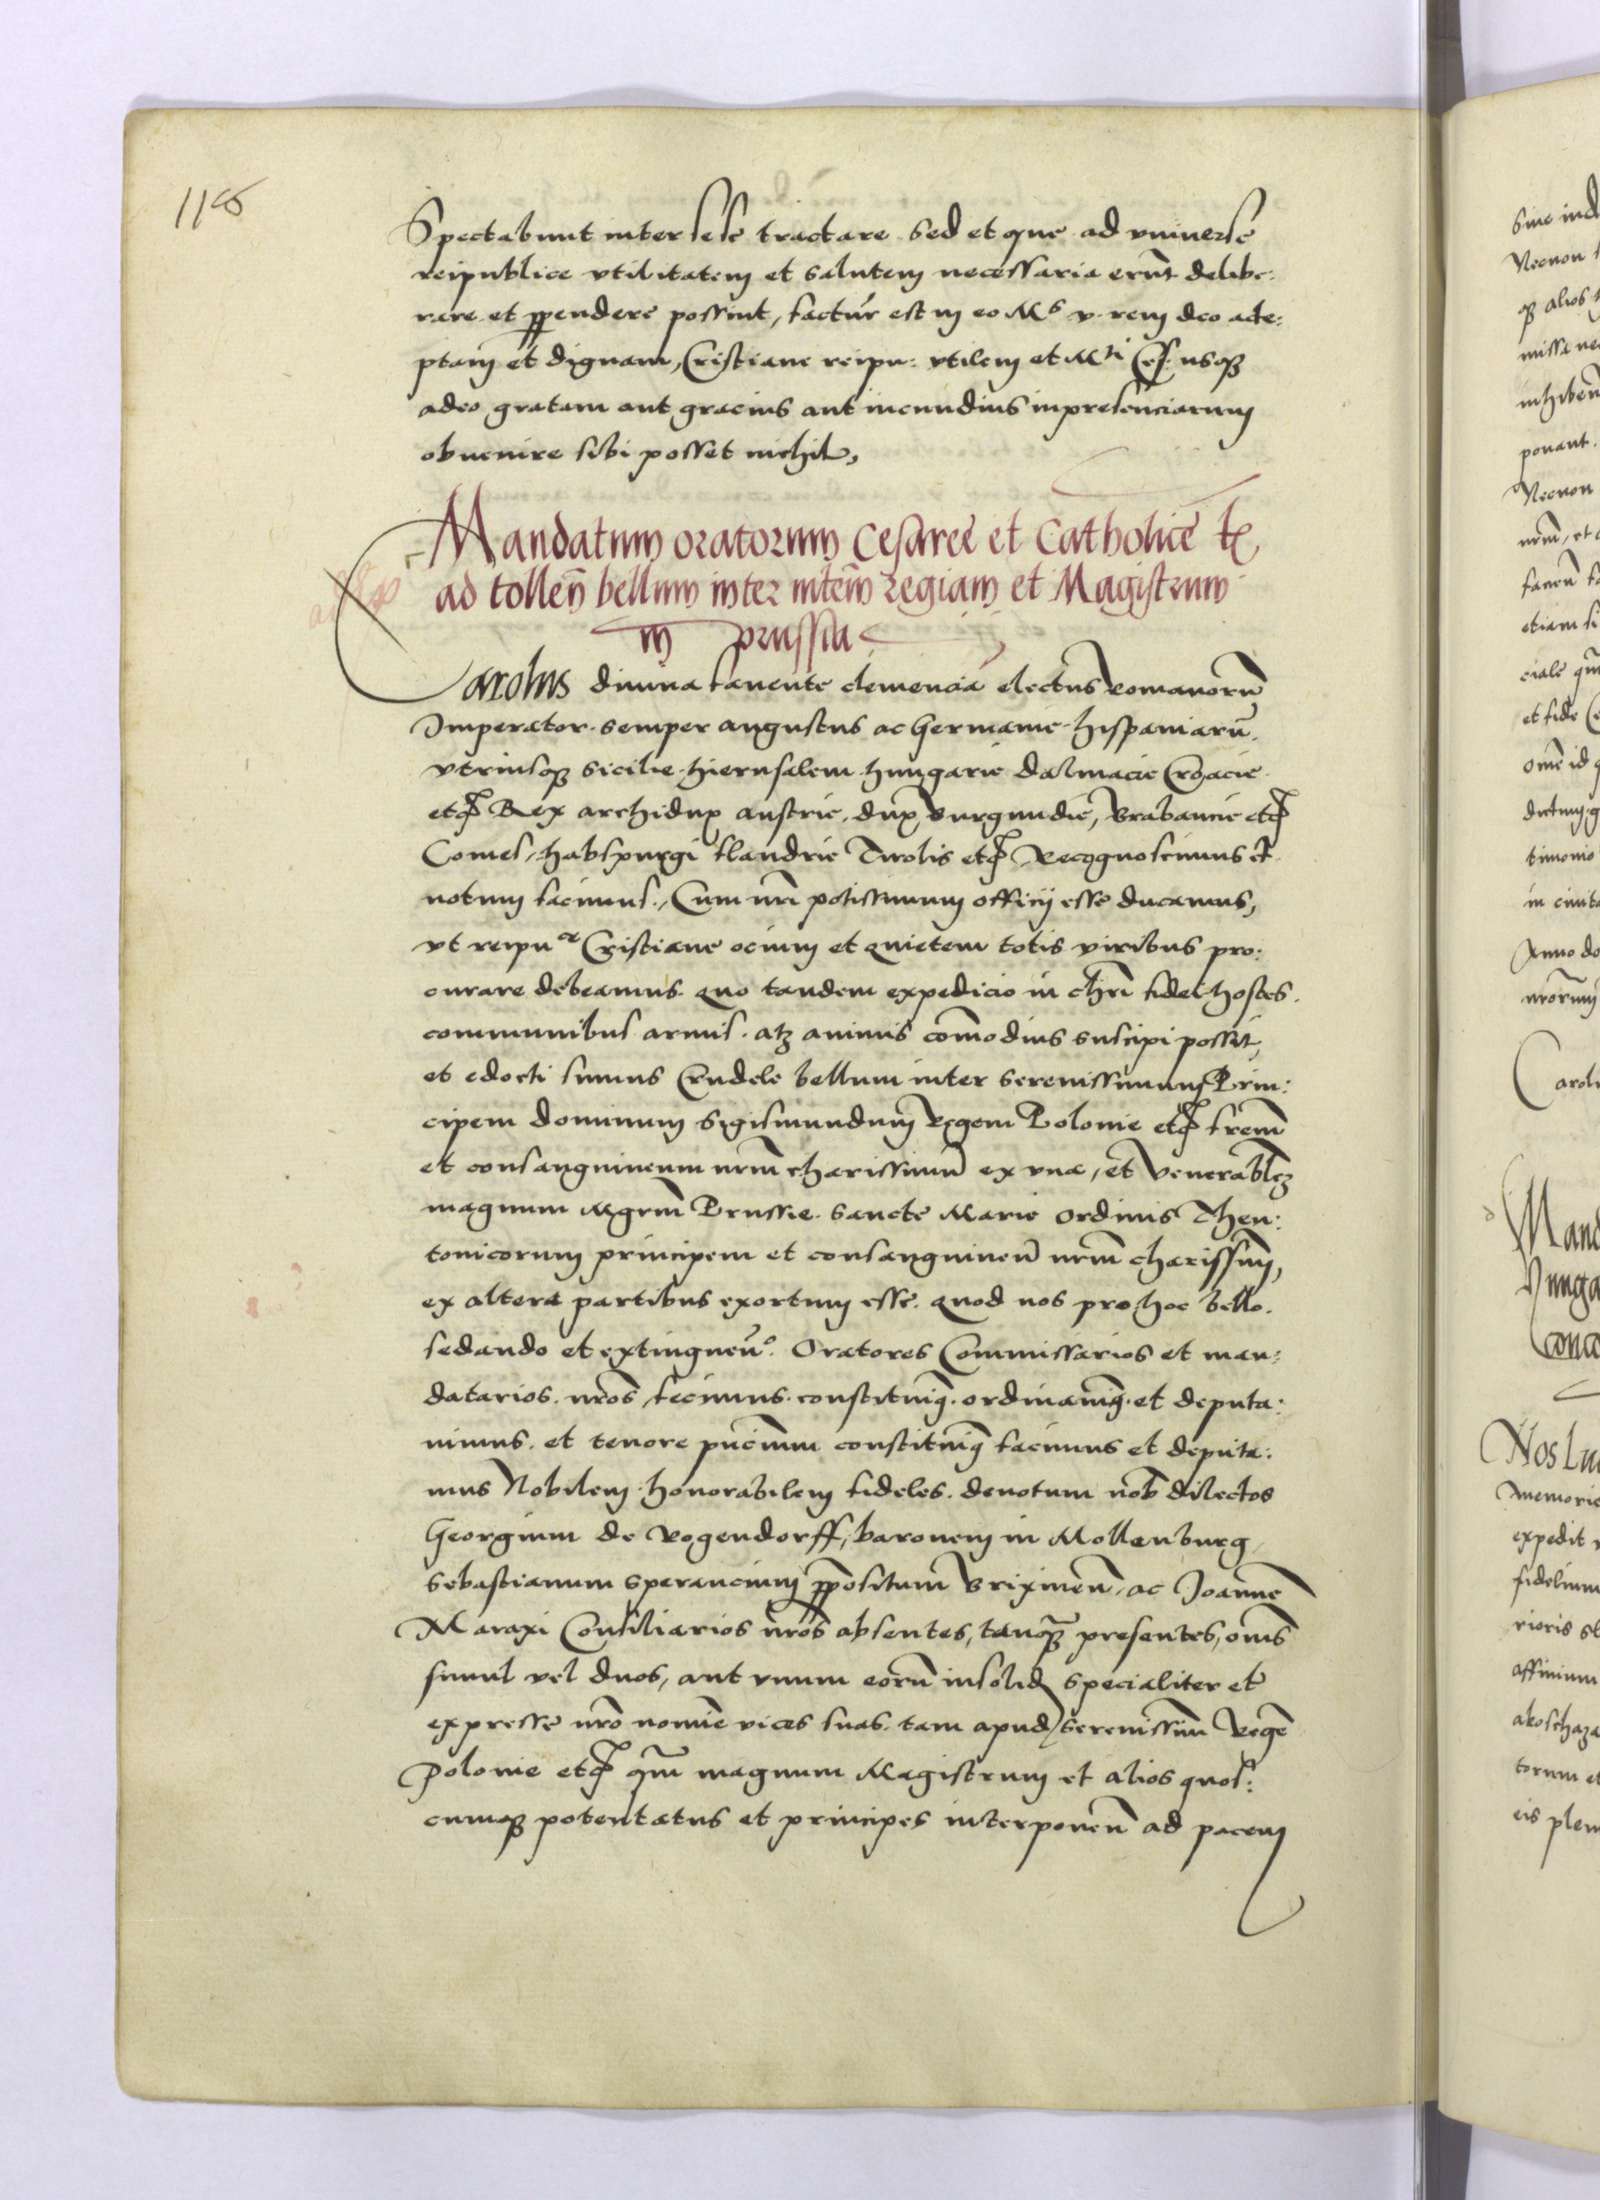 1156
Spectabunt inter sese tractare sed et que ad vniuerse
reipublice vtilitatem et salutem necessaria erūt delibe:
rare et ꝓpendere possint, factur̄ est in eo Mᵗˢ v. rem deo ace:
ptam et dignam, Cristiane reipu: vtilem et Mᵗⁱ Ces. usqꝫ
adeo gratam aut gracius aut iucundius inpresenciarum
obuenire sibi posset nichil,
Mandatum oratorum Cesaree et Catholice
ad tollen̄ bellum inter mtem̄ regiam et Magistrum
in prussia
Carolus diuina fauente clemencia electus romanorū
Imperator semper augustus ac Germanie hispaniarū
vtriusqꝫ Sicilie hierusalem hungarie dalmacie Croacie
etc̄ Rex archidux austrie, dux burgundie, brabancie etc̄
Comes habspurgi flandrie Tirolis etc̄ Recognoscimus et
notum facimus. Cum nr̄i potissimum officij esse ducamus,
vt reipuᶜᵉ Cristiane ocium et quietem totis viribus pro:
curare debeamus quo tandem expedicio in chr̄i fidei hostes
communibus armis atqꝫ animis com̄odius suscipi possit,
et edocti sumus Crudele bellum inter serenissimum Prin:
cipem dominum Sigismundum Regem Polonie etc̄ frem̄
et consanguineum nrm̄ charissimū ex vna, et Venerablēꝫ
magnum Mgrm̄ Prussie Sancte Marie ordinis Theu:
tonicorum principem et consanguineū nrm̄ charissim̄,
ex altera partibus exortum esse. quod nos pro hoc bello
sedando et extinguen̄º. Oratores Commissarios et man:
datarios nros̄ fecimus constituimꝰ ordinauimꝰ et deputa:
uimus. et tenore pn̄cium constituimꝰ facimus et deputa:
mus Nobilem honorabilem fideles deuotum nob̄ dilectos
Georgium de Rogendorff, baronem in Mollenburg
Sebastianum Sperancium ꝓpositum brixinen̄, ac Joannē
Maraxi Consiliarios nros̄ absentes, tanqꝫ presentes, om̄s
simul vel duos, aut vnum eorū insolid specialiter et
expresse nrō nomīe vices suas tam apud serenissim̄ Regē
Polonie etc̄ qm̄ magnum Magistrum et alios quos:
cumqꝫ potentatus et principes interponen̄ ad pacem